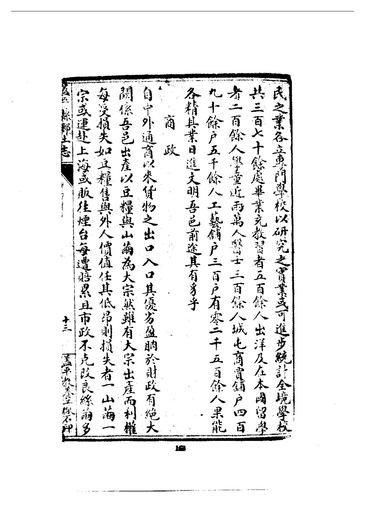 民之業各立專門學校以研究之實業或可進步統計全境學校
共三百七十餘處畢業充教習者五百餘人出洋及在本國留學
者二百餘人學童近兩萬人醫士三百餘人城屯商賈鋪户四百
九十餘户五千餘人工藝鋪户三百户有零二千五百餘人果能
各精其業日進文明吾邑前途其有豸乎
商政
自中外通商以來貨物之出口入口其優劣盈朒於財政有絶大
關係吾邑出產以豆糧與山繭為大宗然雖有大宗出產而利權
每受損失如豆糧售與外人價值任其低昂則損失者一山繭一
宗或運赴上海或販往煙台每遭賠累且市政不克改良絲繭多
縣鄉土志
十三
蓋平
石印